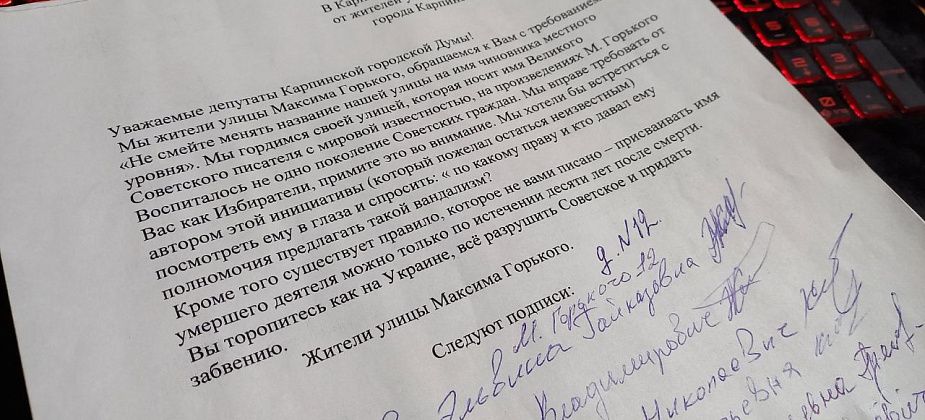 В Кар
от жителей у
города Карпин
Уважаемые депутаты Карпинской городской Думы!
Мы жители улицы Максима Горького, обращаемся к Вам с требованием
«Не смейте менять название нашей улицы на имя чиновника местного
уровня». Мы гордимся своей улицей, которая носит имя Великого
Советского писателя с мировой известностью, на произведениях М. Горького
Воспиталось не одно поколение Советских граждан. Мы вправе требовать от
Вас как Избиратели, примите это во внимание. Мы хотели бы встретиться с
автором этой инициативы (который пожелал остаться неизвестным)
посмотреть ему в глаза и спросить: « по какому праву и кто давал ему
полномочия предлагать такой вандализм?
Кроме того существует правило, которое не вами писано – присваивать имя
умершего деятеля можно только по истечении десяти лет после смерти.
Вы торопитесь как на Украине, всё разрушить Советское и придать
забвению.
Жители улицы Максима Горького.
Следуют подписи:
д. N12.
М. Горького 12
Эльвина Гайказовна
Владимирович
Николаевич